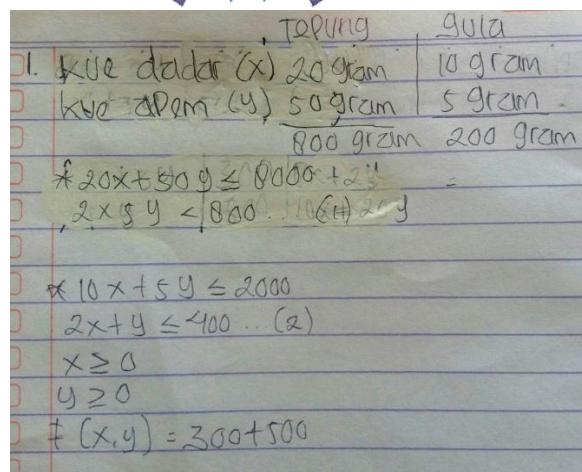 Tepung gula
1. kue dadar (x) 20 gram 10 gram
kue apem (y) 50 gram 5 gram
800 gram 200 gram
* 20x + 50y ≤ 8000
2x 5y < 800
* 10x + 5y ≤ 2000
2x + y ≤ 400 .. (2)
x ≥ 0
y ≥ 0
f (x,y) = 300+500